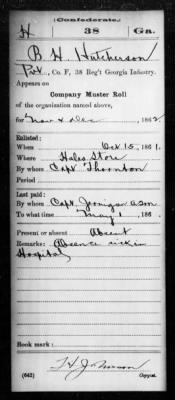 (Confederate.)
H 38 Ga.
B. H. Hutcherson
Pvt., Co. F, 38 Reg't Georgia Infantry.
Appears on
Company Muster Roll
of the organization named above,
for Nov & Dec, 1862
Enlisted:
When Oct 15, 1861.
Where Hales Store
By whom Capt Thornton
Period
Last paid:
By whom Capt. Jernigan
To what time May 1, 186
Present or absent Absent
Remarks: Absence sick in
Hospital
Book mark:
(642) Copyist.